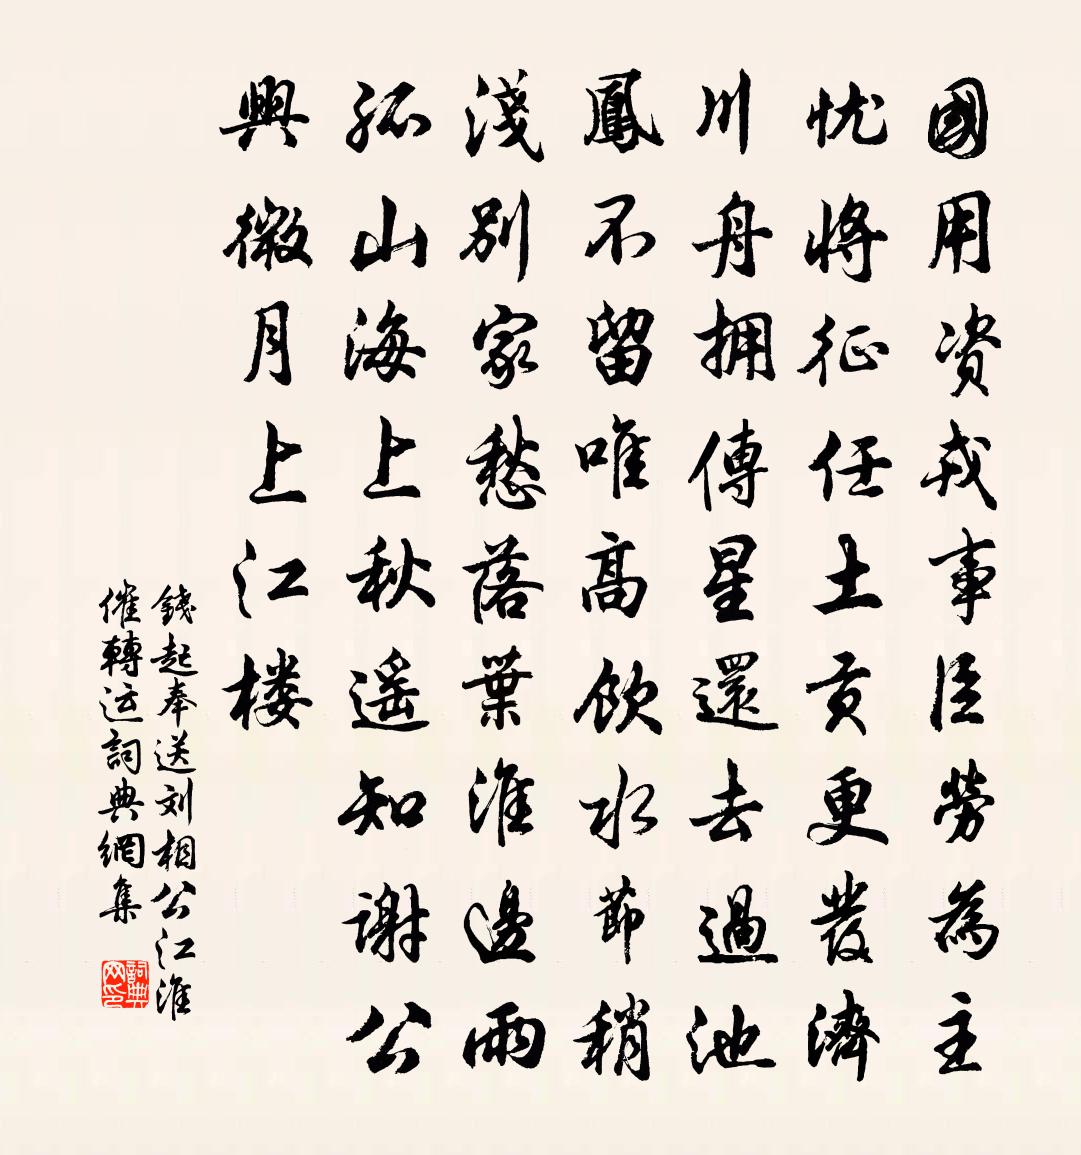 國用資戎事臣勞為主
忧將征任土贡更發濟
川舟拥傳星還去過池
鳳不留唯高飲水節稍
淺別家愁落葉淮邊雨
孤山海上秋遥知谢公
興微月上江楼
錢起奉送刘相公江淮
催轉运詞典網集
詞典网印